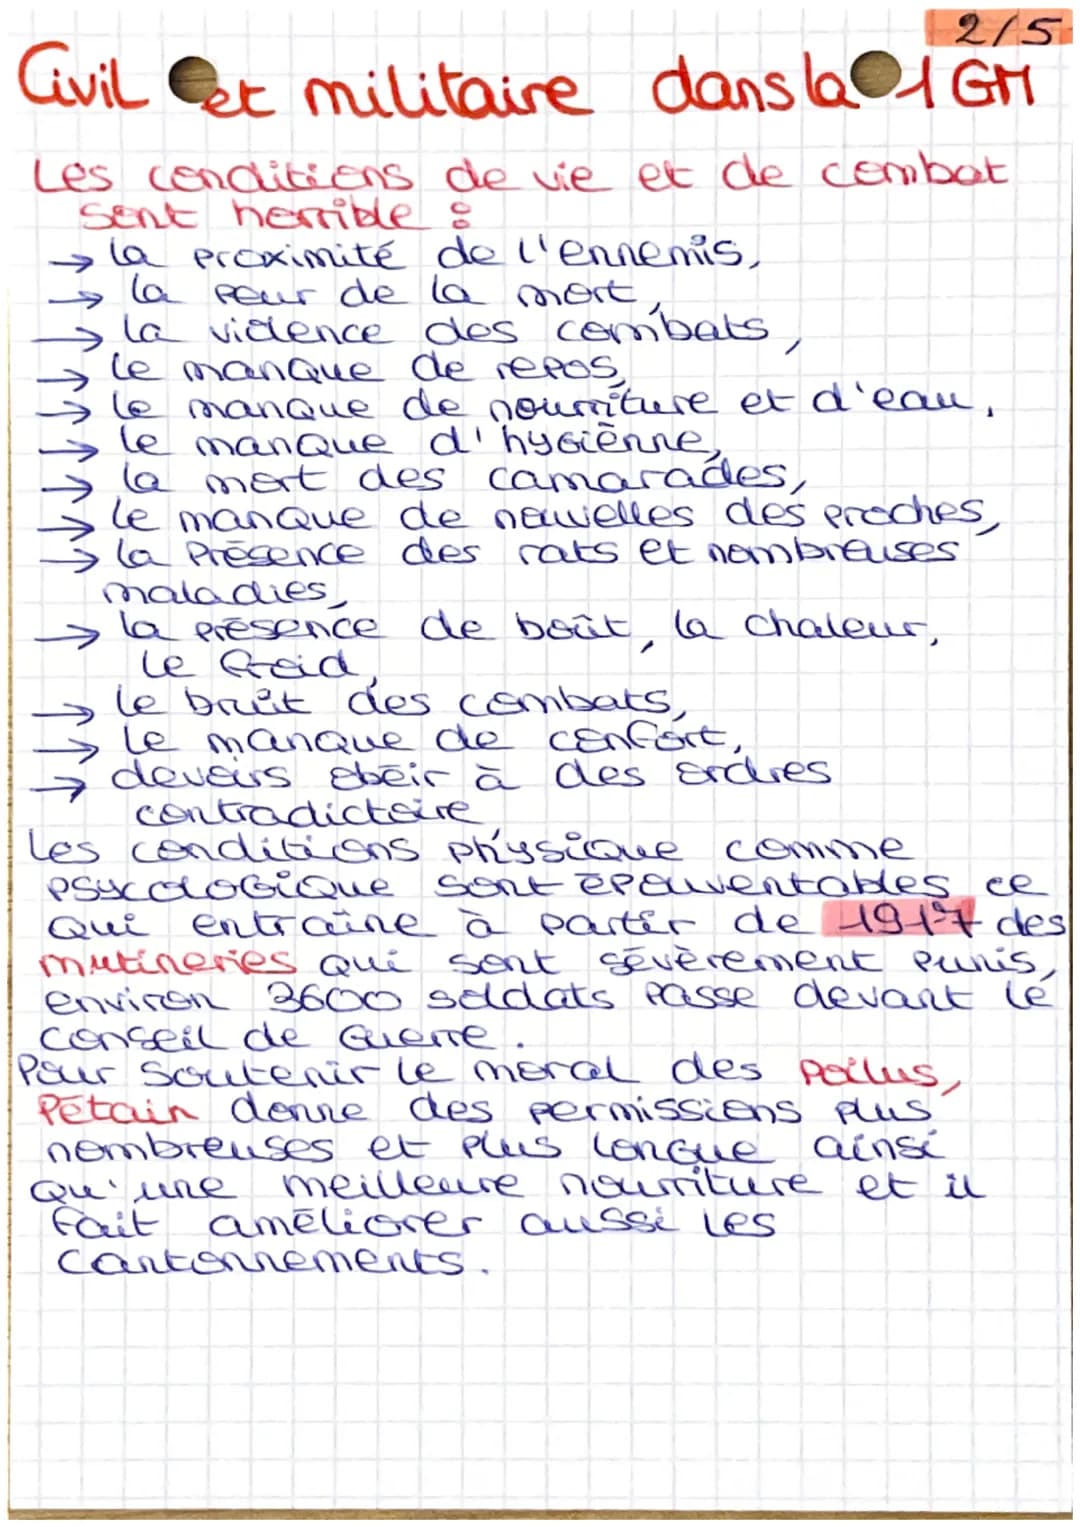 2/5
Civil et militaire dans la 1 GM
Les conditions de vie et de combat
sont horrible :
→ la proximité de l'ennemis,
→ la peur de la mort,
→ la violence des combats,
→ le manque de repos,
→ le manque de nourriture et d'eau,
→ le manque d'hygiènne,
→ la mort des camarades,
→ le manque de nouvelles des proches,
→ la présence des rats et nombreuses
maladies,
→ la présence de boût, la chaleur,
le froid,
→ le bruît des combats,
→ le manque de confort,
→ devoirs obéir à des ordres
contradictoire
Les conditions physique comme
psycologique sont épouventables ce
qui entraîne à partir de 1917 des
mutineries qui sont sévèrement punis,
environ 3600 soldats passe devant le
conseil de guerre.
Pour soutenir le moral des poilus,
Pétain donne des permissions plus
nombreuses et plus longue ainsi
qu'une meilleure nourriture et il
fait améliorer aussi les
cantonnements.